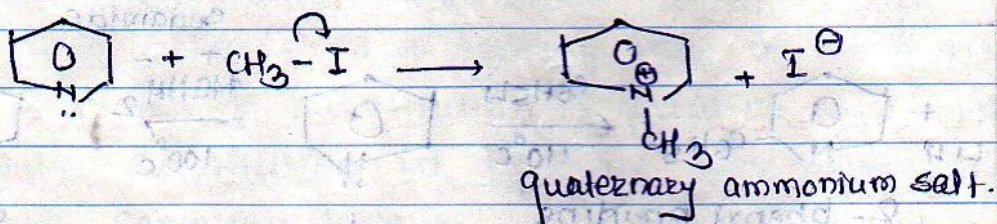 O + CH₃ - I ⟶ O ⊕ + I ⊖
N̤ N
CH₃
quaternary ammonium salt.